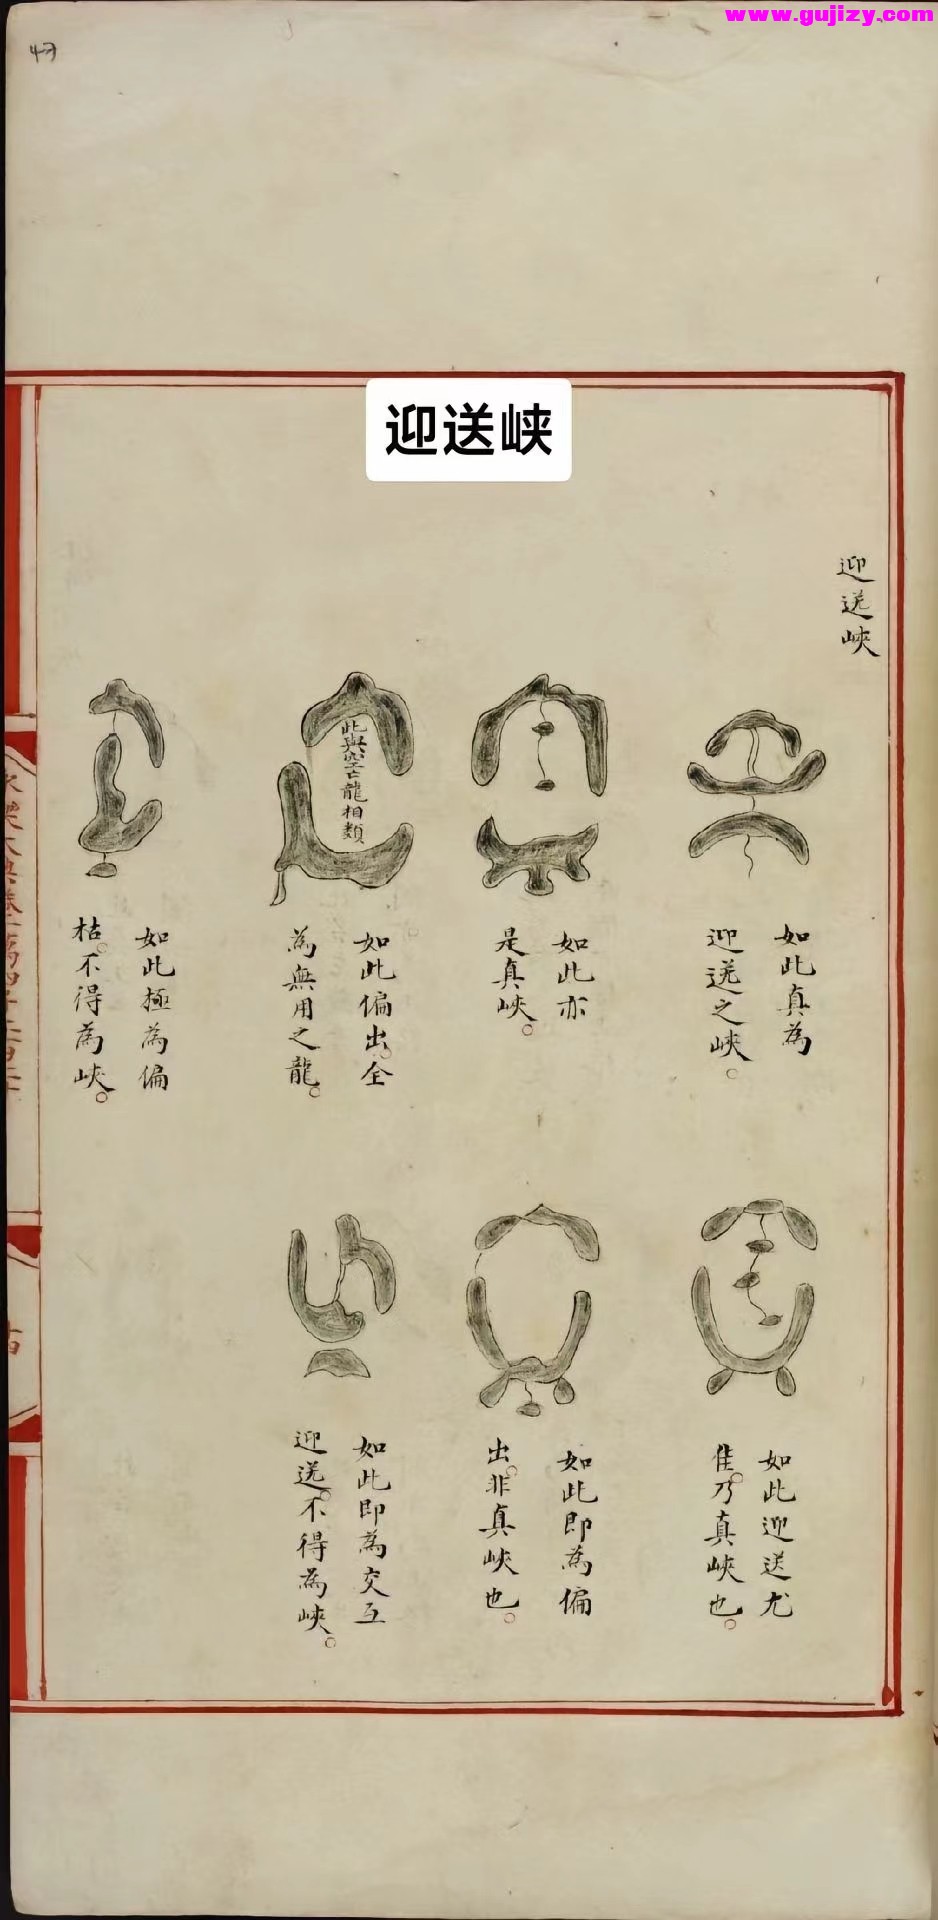 www.gujizy.com
47
迎送峡
迎送峽
如此真為
迎送之峽
如此亦
是真峽
此與空亡龍相類
如此偏出全
為無用之龍
如此極為偏
枯不得為峽
如此迎送尤
佳乃真峽也
如此即為偏
出非真峽也
如此即為交互
迎送不得為峽